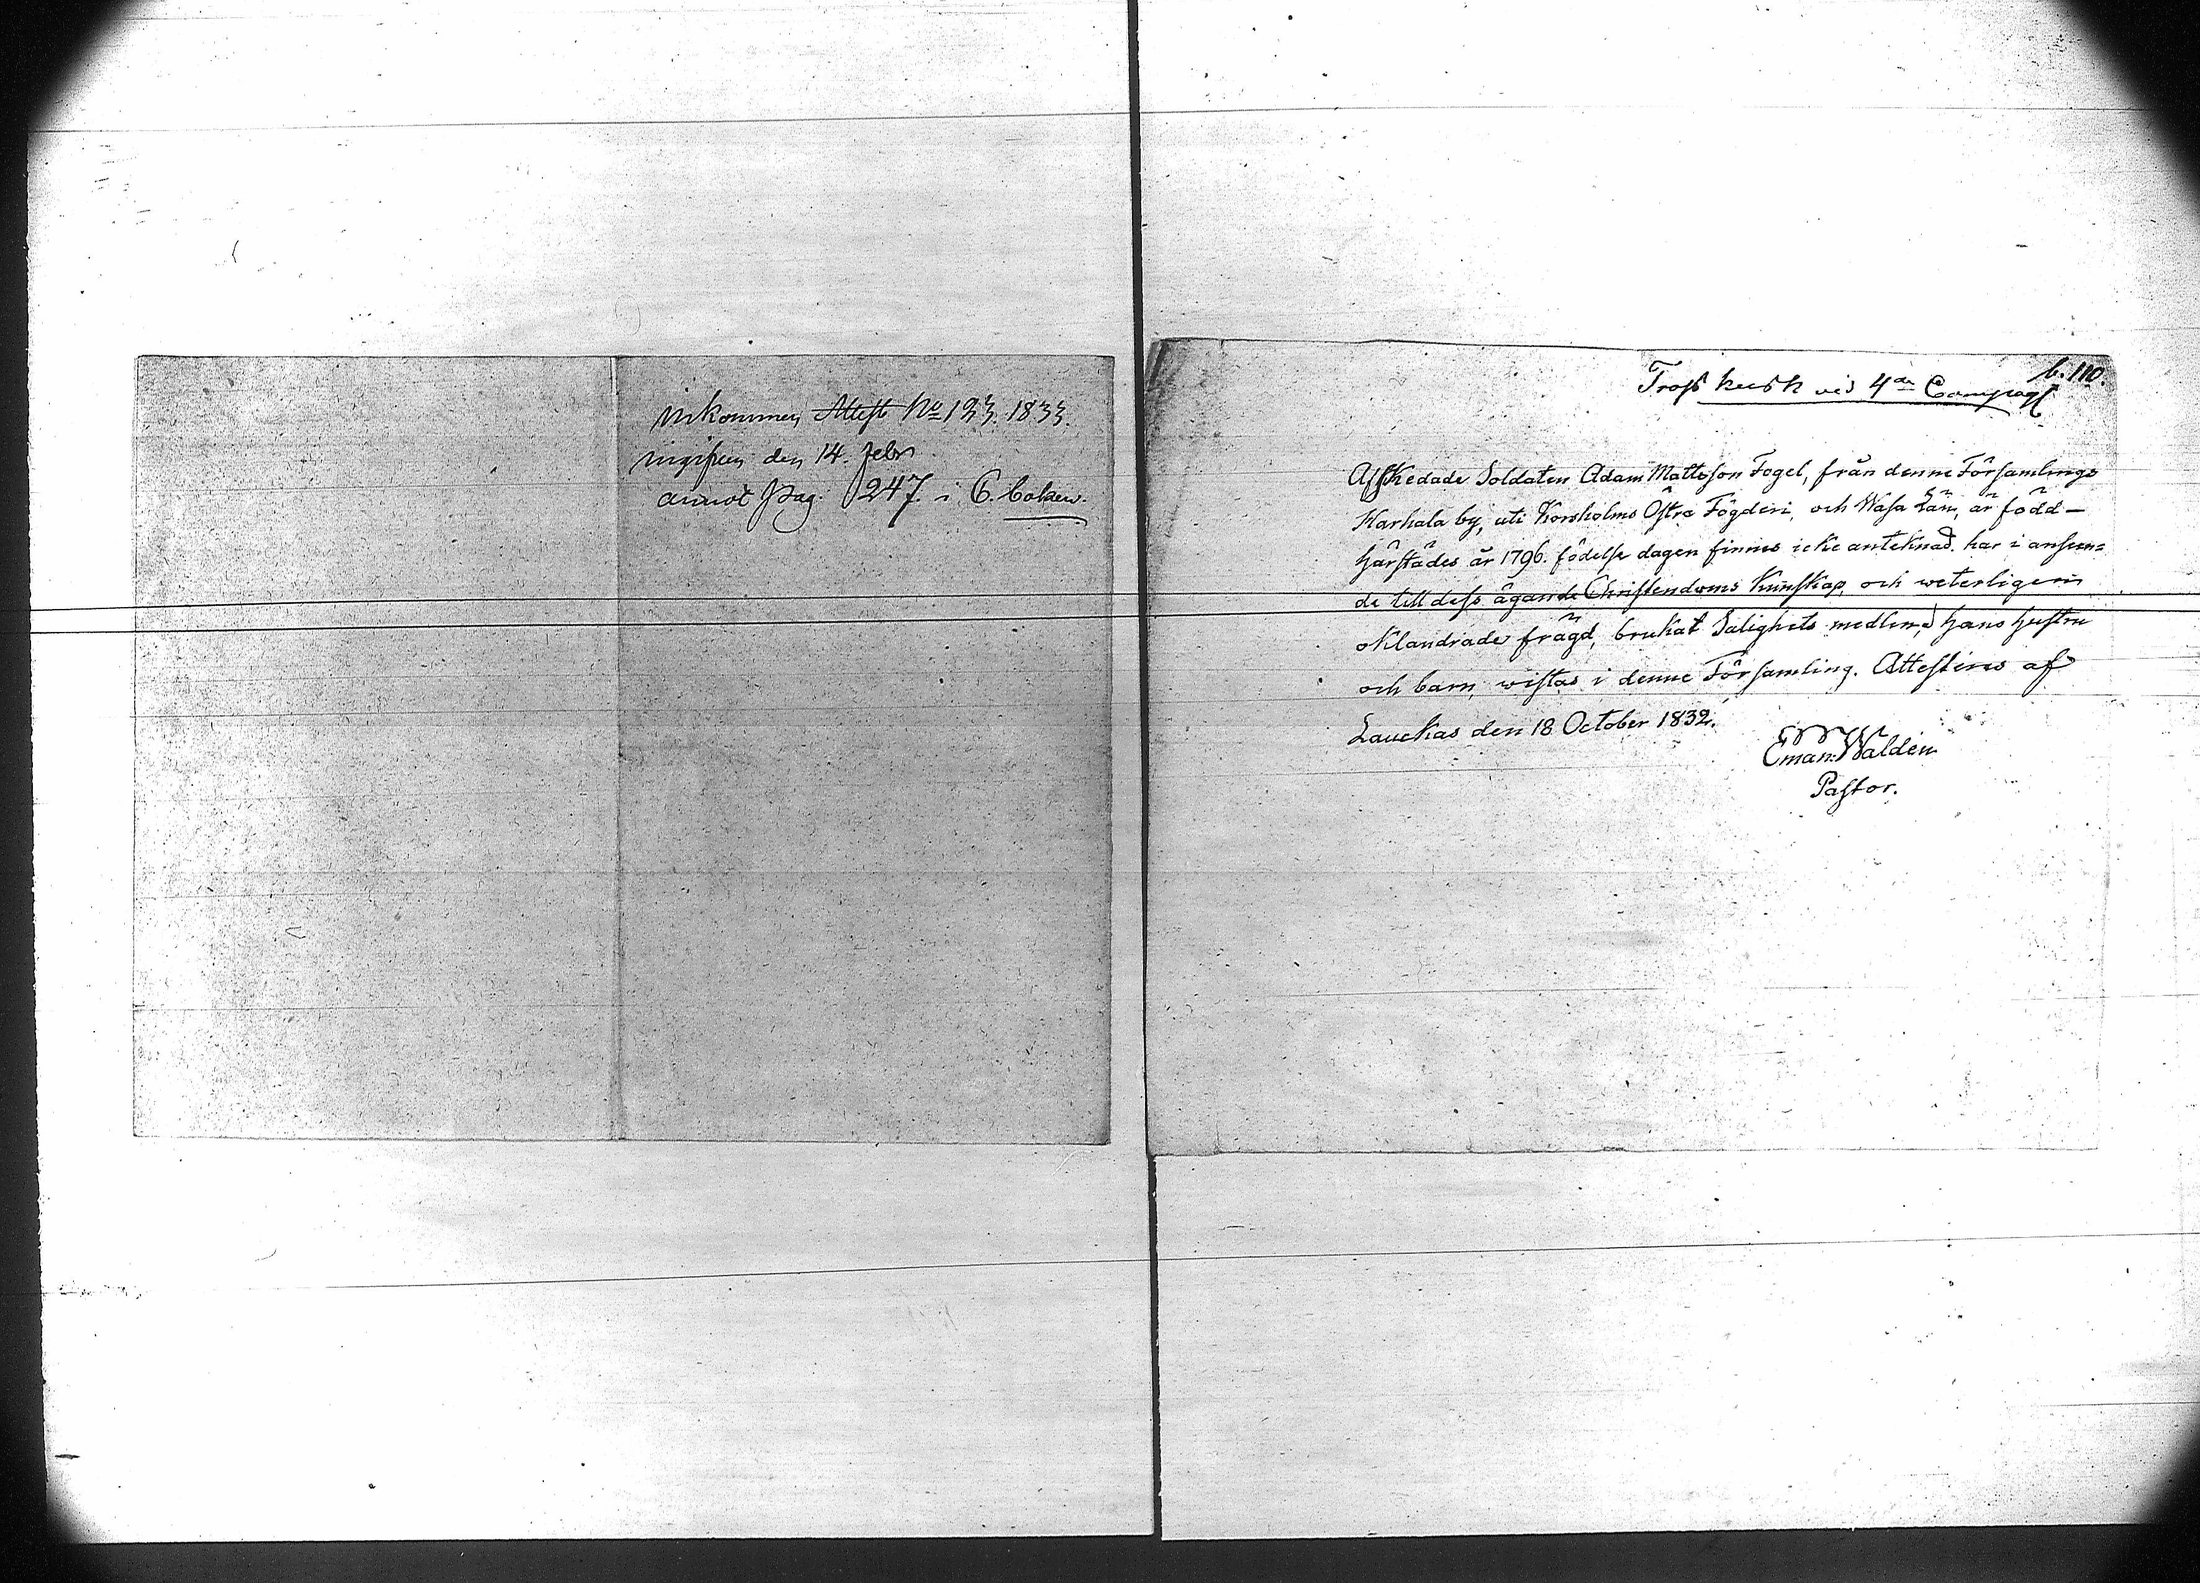 inkommen Attest No 123. 1833.
ingifven den 14. Febr
annot Pag. 247 i C. boken.
b. 110.
Tross kusk vid 4de Compag
Afskedade Soldaten Adam Mattsson Fogel, från denne Församlings
Karhala by, uti Korsholms Östra Fögderi, och Wasa Län, är född
härstädes år 1796. födelse dagen finnes icke anteknad. har i anseen=
de till dess ägande Christendoms Kunskap, och weterligen
oklandrade frägd, brukat Salighets medlen, hans hustru
och barn wistas i denne Församling. Attesteras af
Lauckas den 18 October 1832.
Eman: Walden
Pastor.